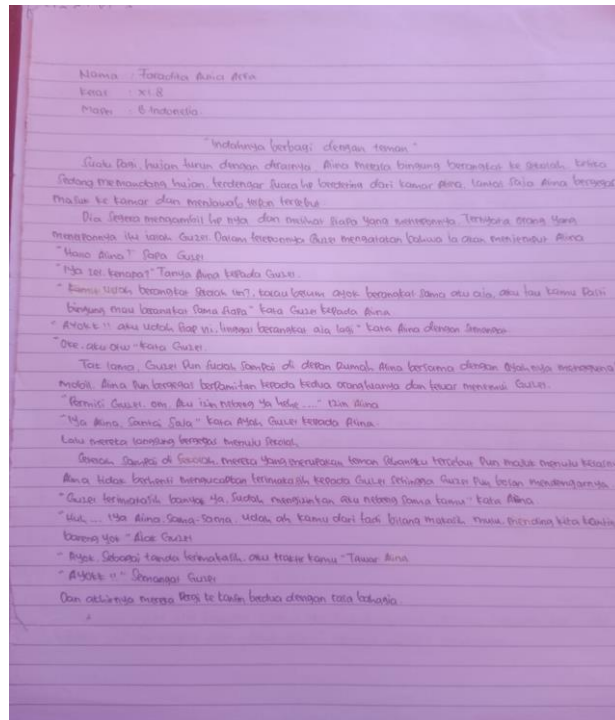 Nama : Faradita Auria Arfa
Kelas : XI.8
Mapel : B. Indonesia
"Indahnya berbagi dengan teman"
Suatu Pagi, hujan turun dengan derasnya. Aina merasa bingung berangkat ke sekolah. Ketika
Sedang memandang hujan, terdengar suara hp berdering dari kamar Aina, lantas saja Aina bergegas
masuk ke kamar dan menjawab telpon tersebut
Dia Segera mengambil hp nya dan melihat siapa yang menelponnya. Ternyata orang yang
menelponnya itu ialah Guzel. Dalam teleponnya Guzel mengatakan bahwa ia akan menjemput Aina
"Halo Aina?" Sapa Guzel
"Iya zel, kenapa?" Tanya Aina kepada Guzel.
"Kamu udah berangkat sekolah? kalau belum ayok berangkat sama aku aja, aku tau kamu Pasti
bingung mau berangkat sama siapa" kata Guzel kepada Aina
"AYOKK!! aku udah siap ni, tinggal berangkat aja lagi" kata Aina dengan Semangat
"Oke, aku otw" kata Guzel.
Tak lama, Guzel Pun sudah sampai di depan rumah Aina bersama dengan Ayahnya
mobil. Aina Pun bergegas berpamitan kepada kedua orangtuanya dan keluar menemui Guzel.
"Permisi Guzel, om. Aku izin nebeng ya hehe...." Izin Aina
"Iya Aina, Santai Saja" kata Ayah Guzel kepada Aina.
Lalu mereka langsung bergegas menuju Sekolah
Setelah Sampai di Sekolah, mereka yang merupakan teman sebangku tersebut Pun masuk menuju kelasnya
Aina tidak berhenti mengucapkan terimakasih kepada Guzel Sehingga Guzel Pun bosan mendengarnya
"Guzel terimakasih banyak ya, Sudah mengizinkan aku nebeng Sama kamu" kata Aina
"Iya Aina, Sama-Sama. Udah ah kamu dari tadi bilang makasih mulu, mending kita kantin
bareng yok" Ajak Guzel
"Ayok, Sebagai tanda terimakasih, aku traktir kamu" Tawar Aina
"AYOKK!!" Semangat Guzel
Dan akhirnya mereka Pergi ke kantin berdua dengan rasa bahagia.